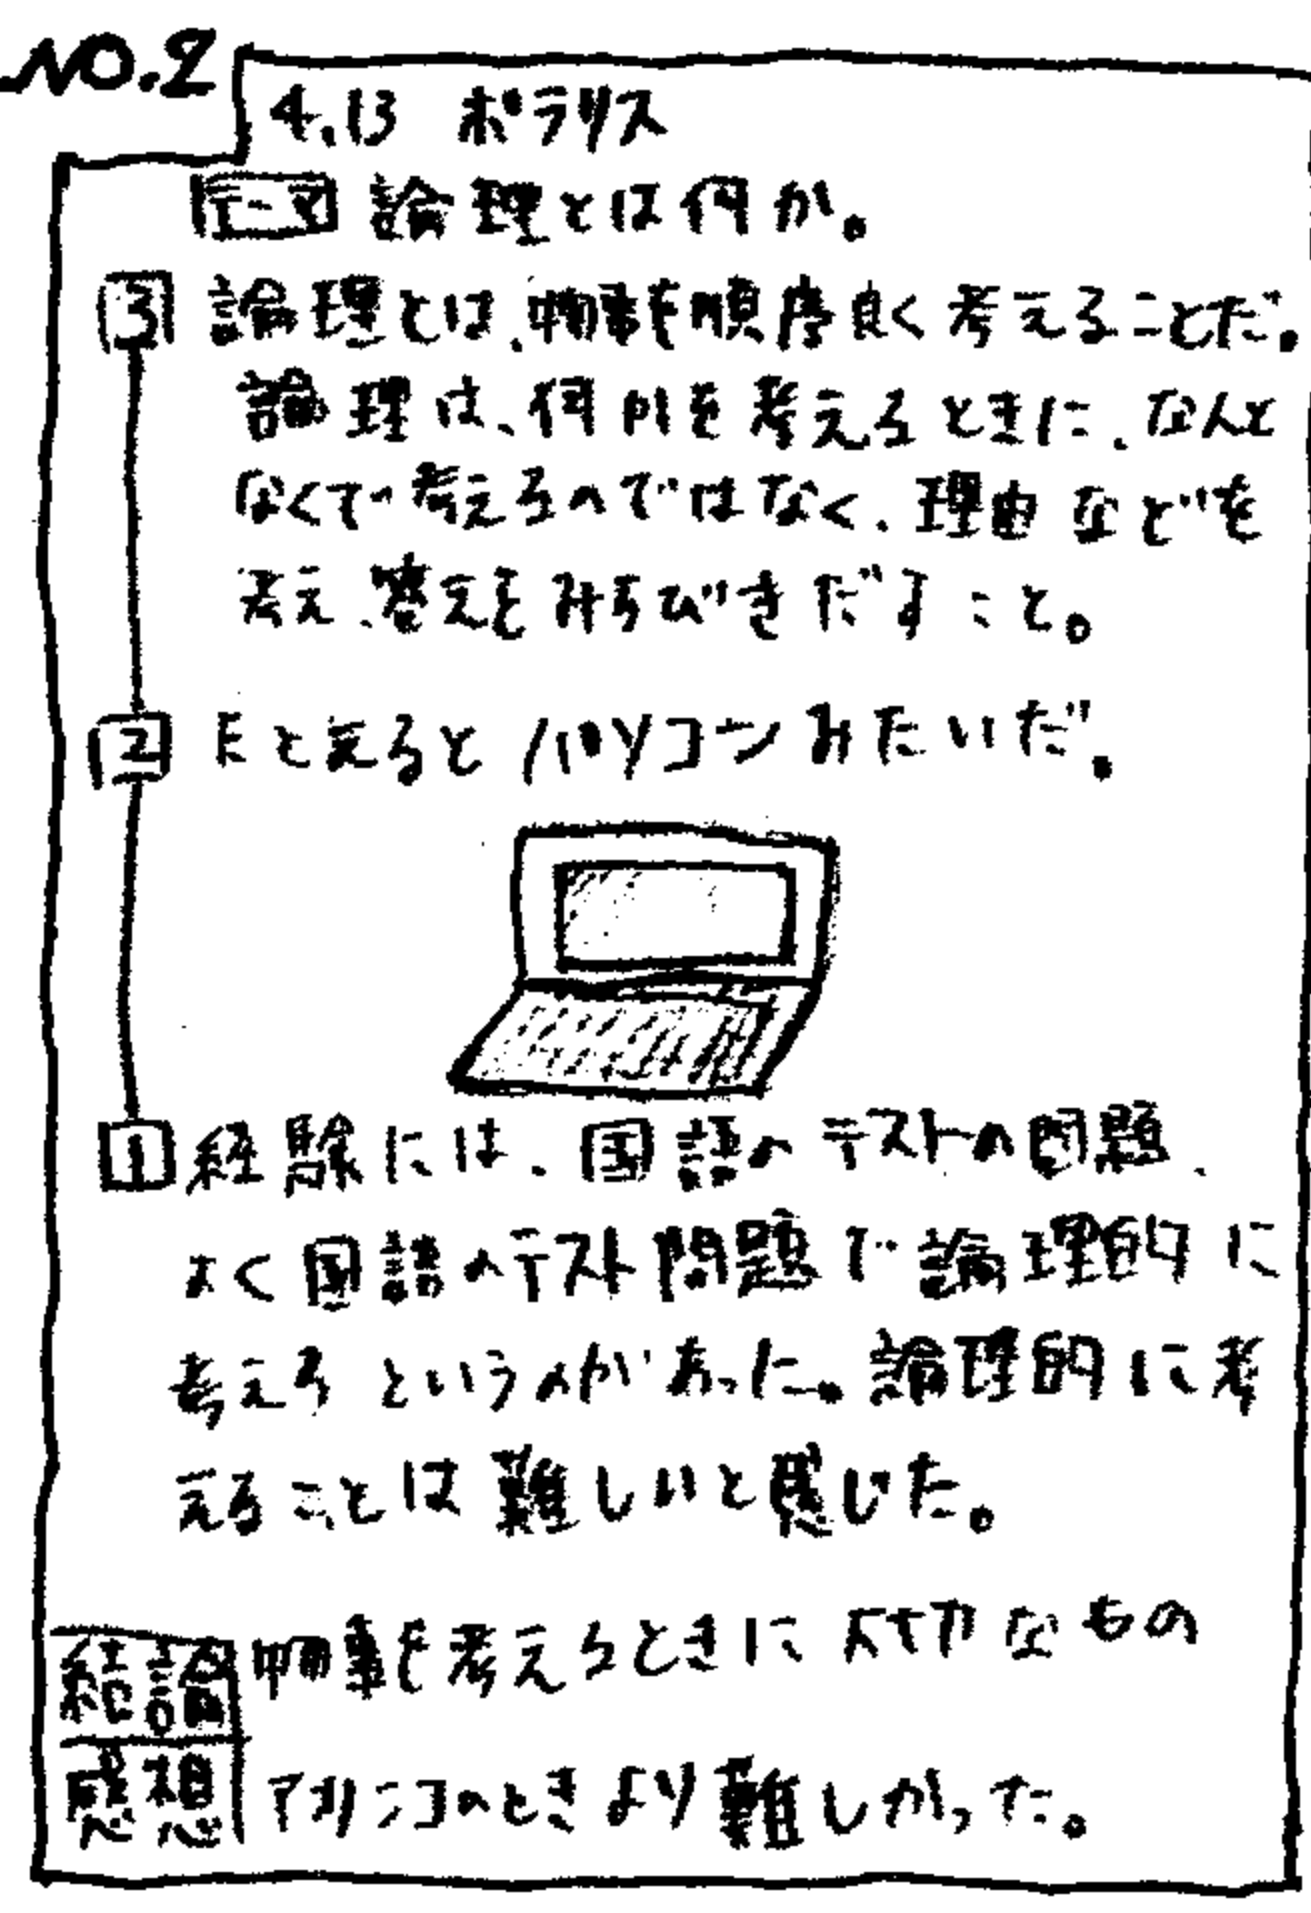 NO.2
4.13 ポラリス
テーマ 論理とは何か。
3 論理とは、物事を順序良く考えることだ。
論理は、何かを考えるときに、なんと
なくで考えるのではなく、理由などを
考え、答えをみちびきだすこと。
2 たとえるとパソコンみたいだ。
1 経験には、国語のテストの問題、
よく国語のテスト問題で論理的に
考えろというのがあった。論理的に考
えることは難しいと感じた。
結論 物事を考えるときに大切なもの
感想 アカリンコのときより難しかった。